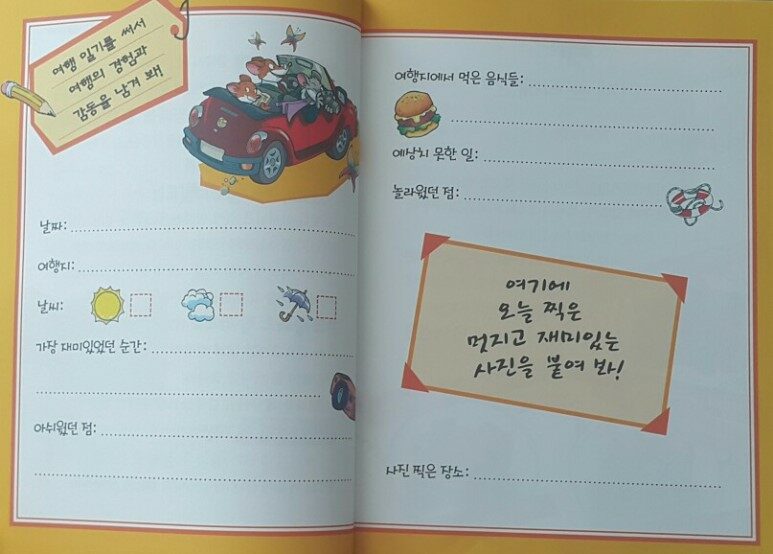 여행 일기를 써서
여행의 경험과
감동을 남겨 봐!
날짜:
여행지:
날씨:
가장 재미있었던 순간:
아쉬웠던 점:
여행지에서 먹은 음식들:
예상치 못한 일:
놀라웠던 점:
여기에
오늘 찍은
멋지고 재미있는
사진을 붙여 봐!
사진 찍은 장소: